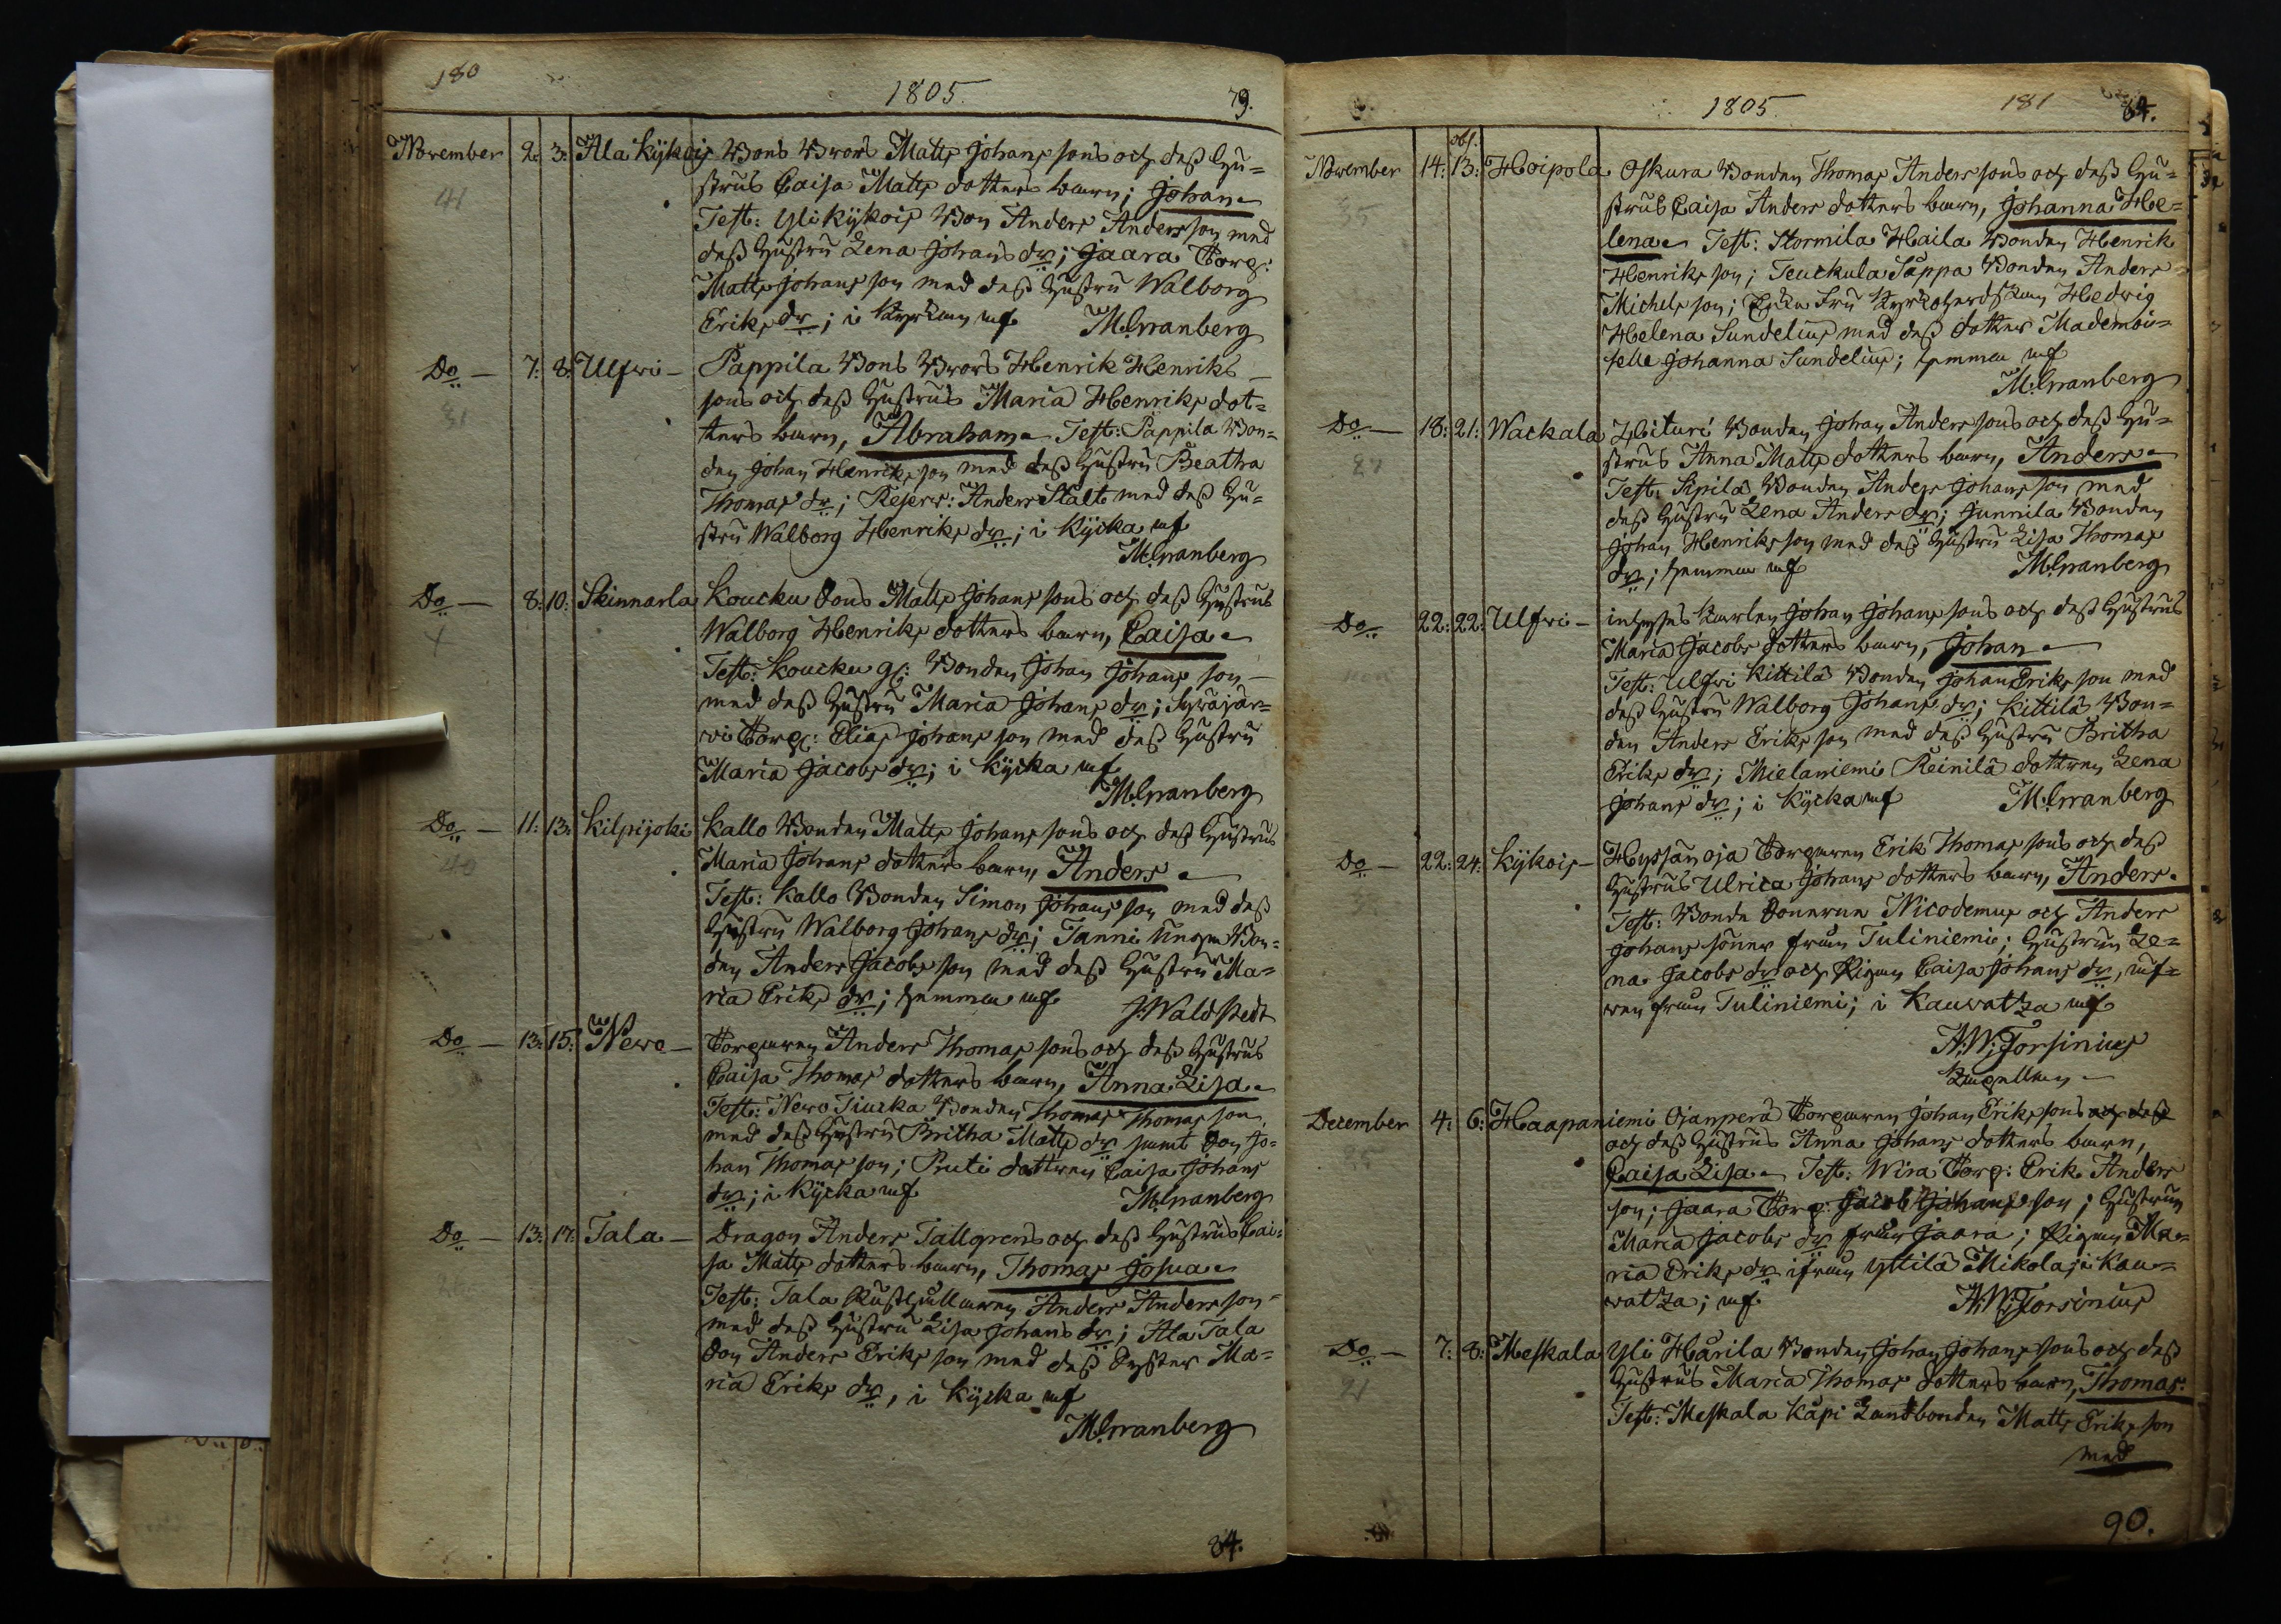 180
1805.
79.
November 2. 3. Ala Kÿkois Bons Brors Matts Johans sons och dess Hu=
41 strus Caisa Matts dotters barn; Johan
Test: Yli Kÿkois Bon Anders Anders son med
dess Hustru Lena Johans dr; Jaara Torp:
Matts Johans son med dess Hustru Walborg
Eriks dr; i Kyrkan af M. Granberg
Do 7. 8. Ulfwi Pappila Bons Brors Henrik Henriks
31 sons och dess Hustrus Maria Henriks dot=
ters barn, Abraham Test: Pappila Bon=
den Johan Henriks son med dess Hustru Beatha
Thomas dr; Reserv: Anders Stålt med dess Hu=
stru Walborg Henriks dr; i Kÿrka af
M. Granberg
Do 8. 10. Skinnarla Koucku Sons Matts Johans sons och dess Hustrus
Walborg Henriks dotters barn, Caisa
Test: Koucku Bonden Johan Johans son
med dess Hustru Maria Johans dr; Sywäjär=
wi Torp: Elias Johans son med dess Hustru
Maria Jacobs dr; i Kÿrka af
M. Granberg
Do 11. 13. Kilpijoki Kallo Bonden Matts Johans sons och dess Hustrus
40 Maria Johans dotters barn, Anders
Test: Kallo Bonden Simon Johans son med dess
Hustru Walborg Johans dr; Tanni Bon=
den Anders Jacobs son med dess Hustru Ma=
ria Eriks dr; hemma af J. Waldstedt
Do 13. 15. Newo Torparen Anders Thomas sons och dess Hustrus
Caisa Thomas dotters barn, Anna Lisa
Test: Newo Tiucka Bonden Thomas Thomas son
med dess Hustru Britha Matts dr samt Son Jo=
han Thomas son; Ruti dottren Caisa Johans
dr; i Kÿrka af M. Granberg
Do 13. 17. Tala Dragon Anders Tallgrens och dess Hustrus Cai=
sa Matts dotters barn, Thomas Josua
Test: Tala Rusthållaren Anders Anders son
med dess Hustru Lisa Johans dr; Ala Tala
Son Anders Eriks son med dess Syster Ma=
ria Eriks dr, i Kÿrka af
M. Granberg
84.
1805
181
84.
obs.
November 14. 13. Hoipola Oskura Bonden Thomas Anders sons och dess Hu=
35 strus Caisa Anders dotters barn, Johanna He=
lena Test: Stormila Haila Bonden Henrik
Henriks son; Teuckula Sappa Bonden Anders
Michels son; Fru Kyrkoherdskan Hedwig
Helena Sundelius med dess dotter Mademoi=
selle Johanna Sundelius; hemma af
M. Granberg
Do 18. 21. Wackala Hituri Bonden Johan Anders sons och dess Hu=
strus Anna Matts dotters barn, Anders
Test: Sipilä Bonden Anders Johans son med
dess Hustru Lena Anders dr; Junnila Bonden
Johan Henriks son med dess Hustru Lisa Thomas
dr; hemma af M. Granberg
Do 22. 22. Ulfwi inhyses Karlen Johan Johans sons och dess Hustrus
Maria Jacobs dotters barn, Johan
Test: Ulfwi Kittilä Bonden Johan Eriks son med
dess Hustru Walborg Johans dr; Kittilä Bon=
den Anders Eriks son med dess Hustru Britha
Eriks dr; Mielaniemi Reinilä dottren Lena
Johans dr; i Kÿrka af M. Granberg
Do 22. 24. Kÿkois Hyssän oja Torparen Erik Thomas sons och dess
Hustrus Ulrica Johans dotters barn, Anders.
Test: Bonde Sönerna Nicodemus och Anders
Johans söner från Tuliniemi; Hustrun Le=
na Jacobs dr och Pigan Caisa Johans dr, äf=
wen från Tuliniemi; i Kauwatza af
A. W. Forsinius
Capellan
December 4. 6. Haapaniemi Ojanperä Torparen Johan Eriks sons och dess
och dess Hustrus Anna Johans dotters barn,
Caisa Lisa Test: Wira Torp: Erik Anders
son; Jaara Torp: Jacob Johans son; Hustrun
Maria Jacobs dr från Jaara; Pigan Ma=
ria Eriks dr ifrån Yttilä Mikola; i Kau=
watza; af A. W. Forsinius
Do 7. 8. Meskala Yli Härila Bonden Johan Johans sons och dess
21 Hustrus Maria Thomas dotters barn, Thomas.
Test: Meskala Käpi Landbonden Matts Eriks son
med
90.